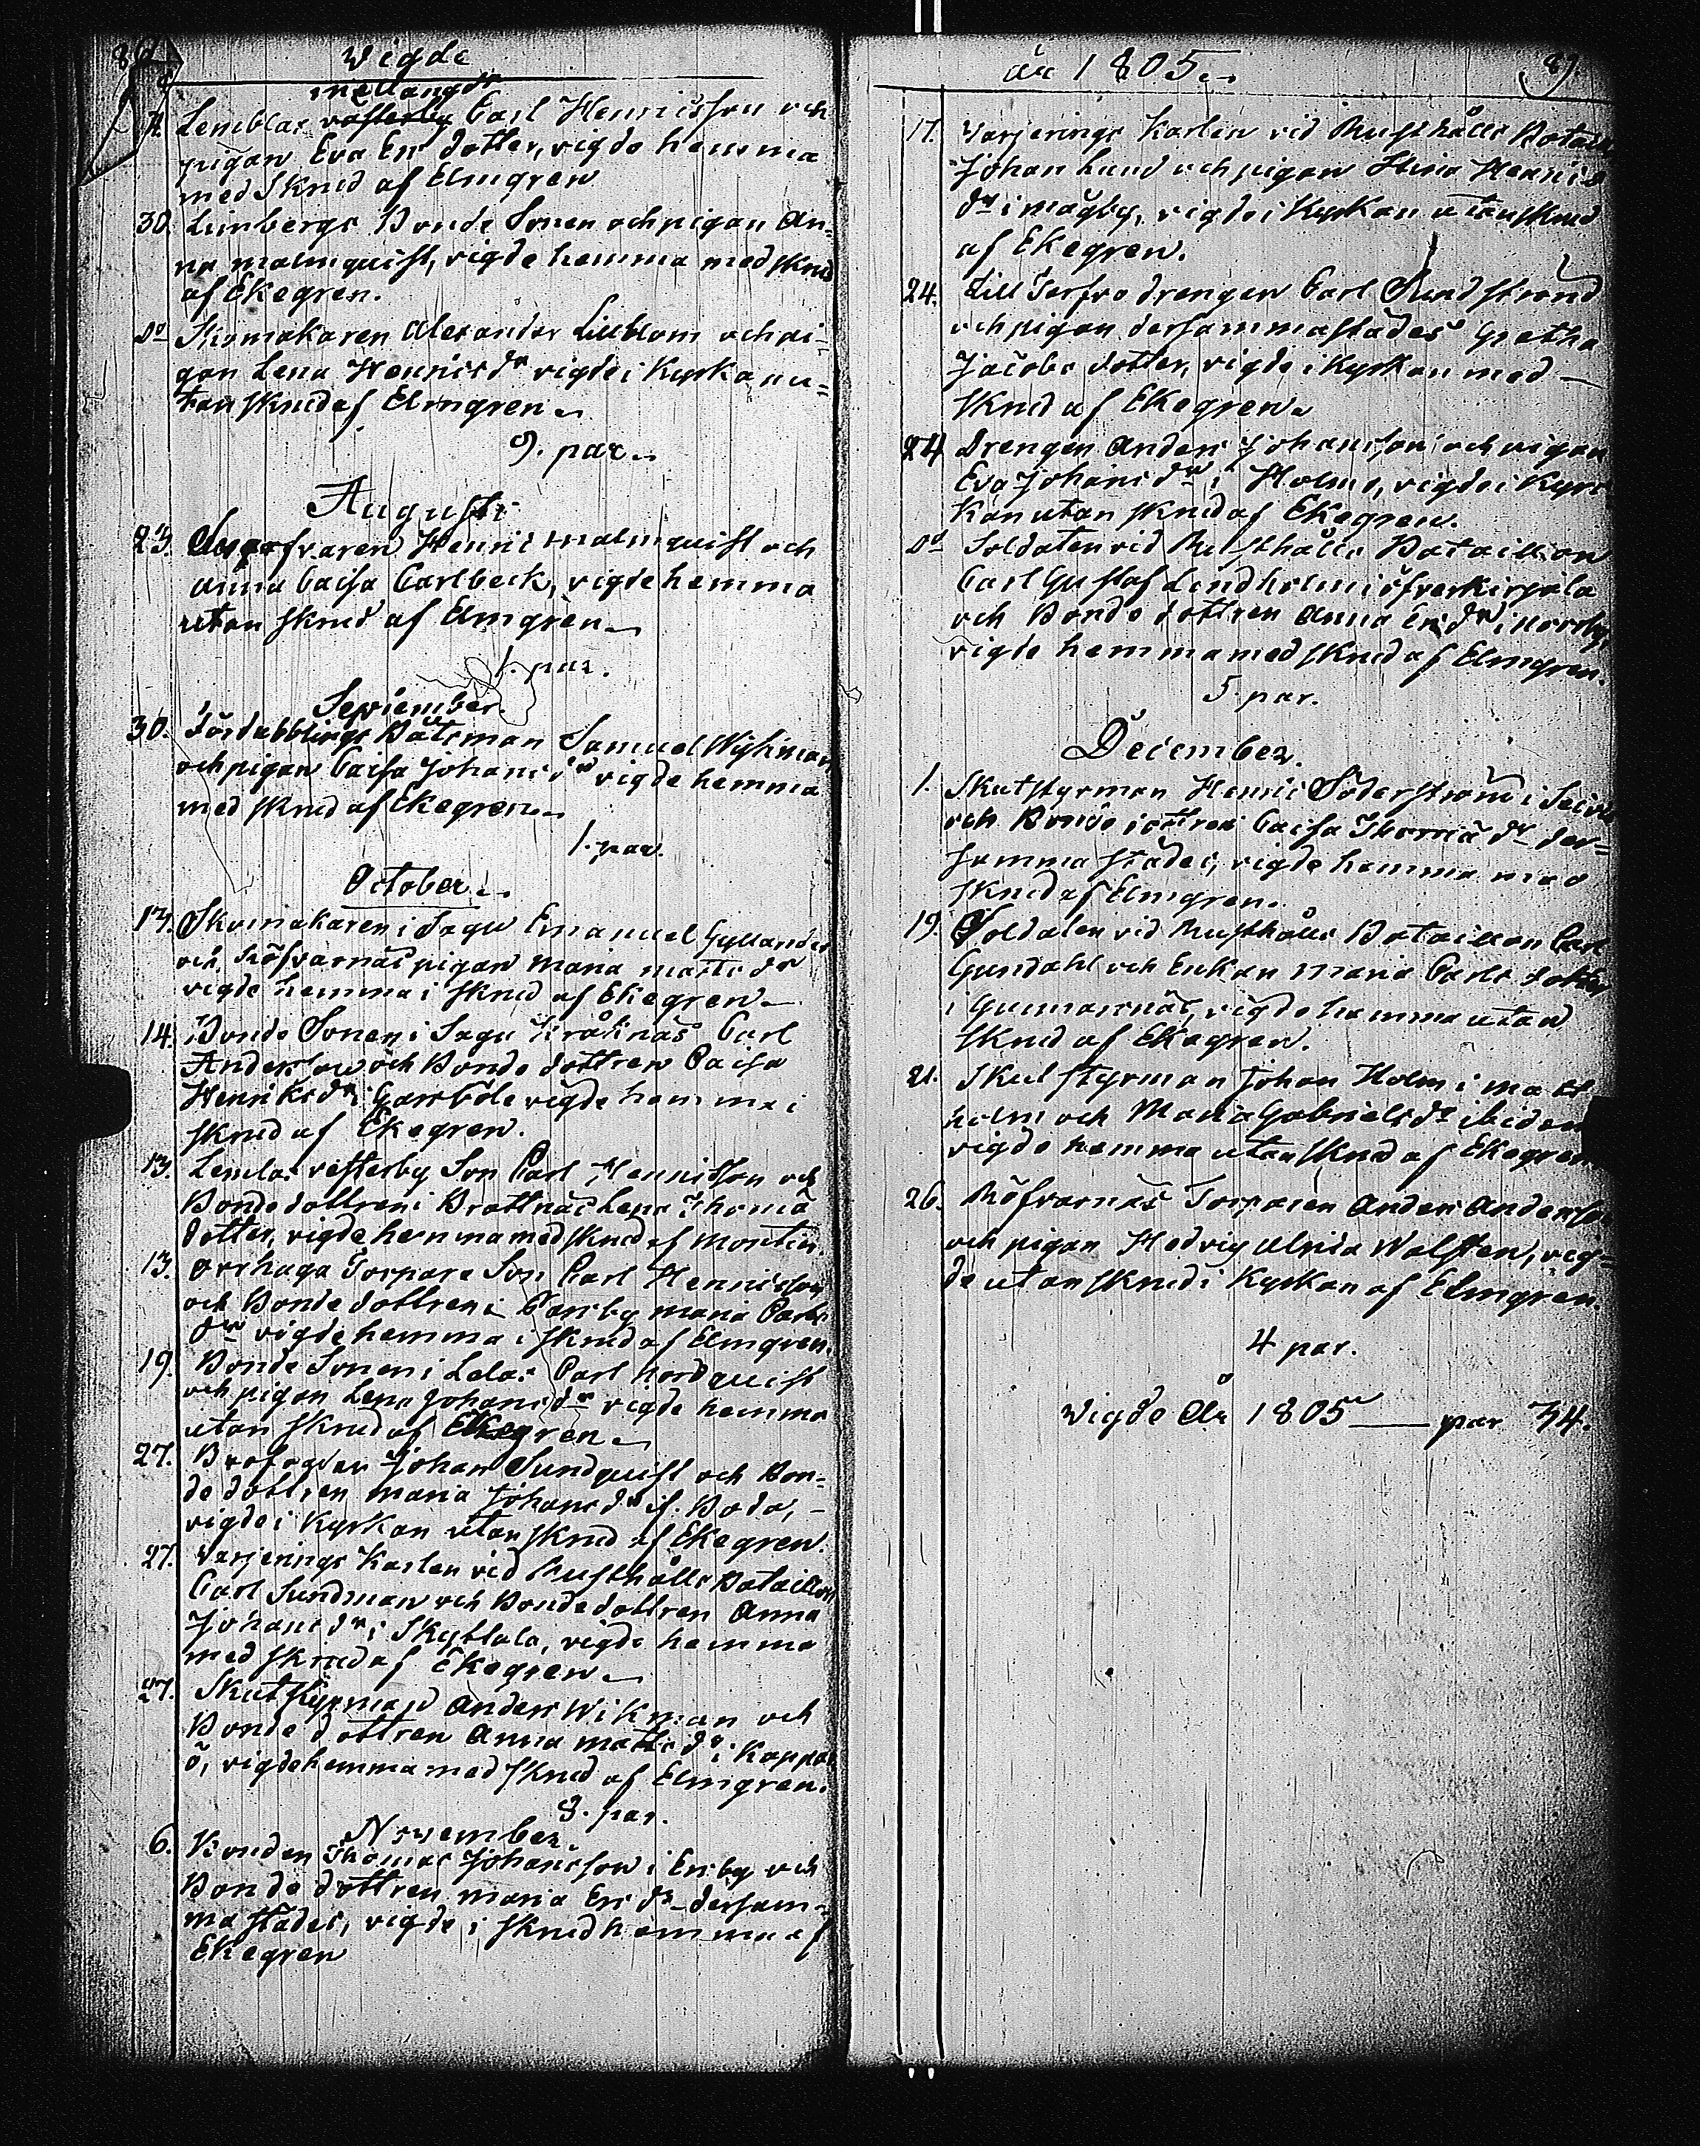 86
Vigde
mellangd
Lemblax västerby Carl Henricsson och
pigan Eva Ers dotter, vigde hemma
med skrud af Elmgren
30. Limbergs Bonde Sonen och pigan An-
na Malmquist, vigde hemma med skrud
af Ekegren.
Do Skomakaren Alexander Lillblom och pi-
gan Lena Henricsdr vigde i Kyrkan u-
tan skrud af Elmgren
9. par.
Augusti
23. Henric Malmquist och
Anna Caisa Carlbeck, vigde hemma
utan skrud af Elmgren
1. par.
September.
30. Fördubblings Båtsman Samuel Wikman
och pigan Caisa Johansdr vigde hemma
med skrud af Ekegren
1. par.
October.
13. Skomakaren i Sagu Emanuel Gyllander
och Röfvarnäs pigan Maria Mattsdr
vigde hemma i skrud af Ekegren
14. Bonde Sonen i Sagu Kråknäs Carl
Andersson och Bonde dottren Caisa
Henriksdr i Garrböle vigde hemma i
skrud af Ekegren.
13. Lemlax vesterby Son Carl Henricsson och
Bonde dottren i Brattnäs Lena Thomæ
dotter, vigde hemma med skrud af Montin.
13. Orrhaga Torpare Son Carl Henricsson
och Bonde dottren i Garrby Maria Carls
dr vigde hemma i skrud af Elmgren.
19. Bonde Sonen i Lelax Carl Nordquist
och pigan Lena Johansdr vigde hemma
utan skrud af Ekegren
27. Brofogden Johan Sundquist och Bon-
de dottren Maria Johansdr if. Boda,
vigde i Kyrkan utan skrud af Ekegren.
27. Varjerings Karlen vid Rusthålls Bataillon
Carl Sundman och Bonde dottren Anna
Johansdr i Skyttala, vigde hemma
med skrud af Ekegren
27. Skutstyrman Anders Wikman och
Bonde dottren Anna Mattsdr i Koppar
ö, vigde hemma med skrud af Elmgren.
8. par.
November.
6. Bonden Thomas Johansson i Ersby och
Bonde dottren Maria Ersdr dersam-
ma städes, vigde i skrud hemma af
Ekegren
år 1805
87.
17. Varjerings Karlen vid Rusthålls Bataill
Johan Lund och pigan Stina Henrics
dr i Mågby, vigde i Kyrkan utan skrud
af Ekegren.
24. Lill Terfvo drengen Carl Sundstrand
och pigan dersammastädes Gretha
Jacobs dotter, vigde i Kyrkan med
skrud af Ekegren
24 Drengen Anders Johansson och pigan
Eva Johansdr i Holmo, vigde i Kyr-
kan utan skrud af Ekegren.
Do Soldaten vid Rusthålls Bataillion
Carl Gustaf Lindholm i öfverkirjala
och Bonde dottren Anna Ersdr i Norrby,
vigde hemma med skrud af Elmgren.
5. par.
December.
1. Skutstyrman Henric Söderström i
och Bonde dottren Caisa Thomædr der=
samma städes, vigde hemma med
skrud af Elmgren.
19. Soldaten vid Rusthålls Bataillon Carl
Gundahl och Enkan Maria Carls dotter
i Gunnarsnäs, vigde hemma utan
skrud af Ekegren.
21. Skutstyrman Johan Holm i Matt
holm och Maria Gabrielsdr ibidem
vigde hemma utan skrud af Ekegren
26. Röfvarnäs Torparen Anders Andersson
och pigan Hedvig Ulrica Walsten, vig-
de utan skrud i Kyrkan af Elmgren.
4 par.
Vigde År 1805 par 34.